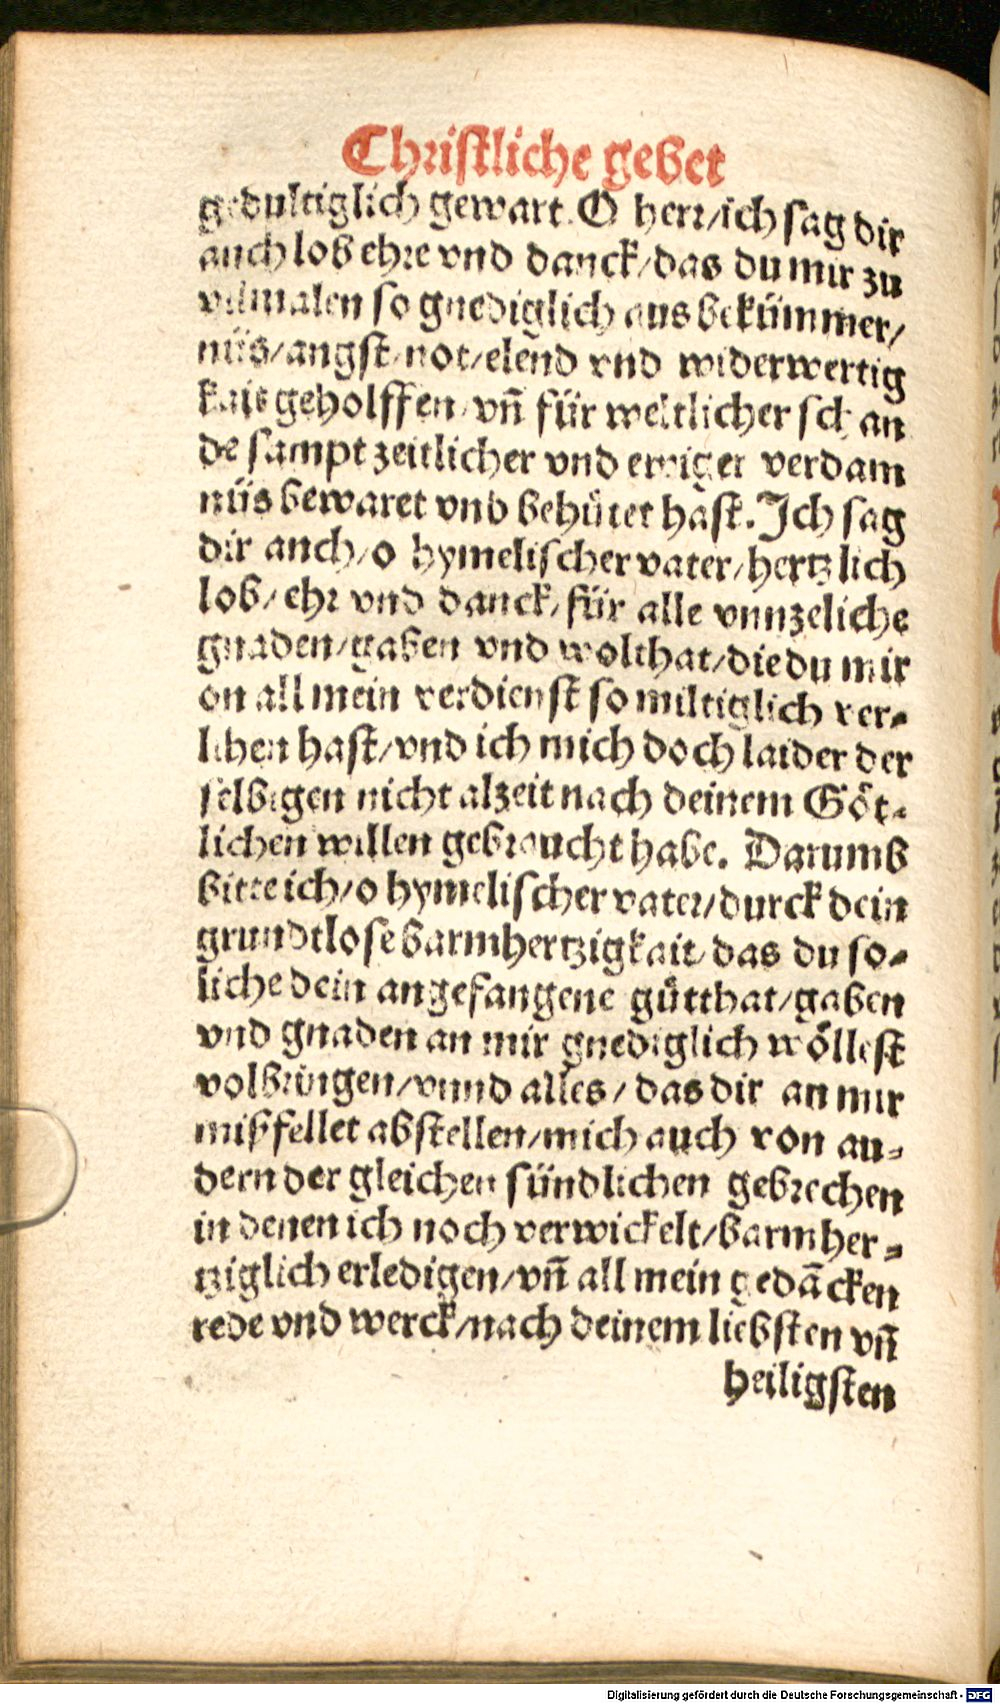 Christliche gebet
gedultiglich gewart. O herr/ich sag dir
auch lob ehre vnd danck/das du mir zu
vilmalen so gnediglich aus bekümmer/
nüs/angst/not/elend vnd widerwertig
kait geholffen/vñ für weltlicher schan
de sampt zeitlicher vnd ewiger verdam
nüs bewaret vnd behütet hast. Ich sag
dir auch/o hymelischer vater/hertzlich
lob/ehr vnd danck/für alle vnnzeliche
gnaden/gaben vnd wolthat/die du mir
on all mein verdienst so miltiglich ver-
lihen hast/vnd ich mich doch laider der
selbigen nicht alzeit nach deinem Göt-
lichen willen gebraucht habe. Darumb
bitte ich/o hymelischer vater/durck dein
grundtlose barmhertzigkait/das du so-
liche dein angefangene gütthat/gaben
vnd gnaden an mir gnediglich wöllest
volbringen/vnnd alles/das dir an mir
mißfellet abstellen/mich auch von an-
dern der gleichen sündlichen gebrechen
in denen ich noch verwickelt/barmher-
tziglich erledigen/vñ all mein gedācken
rede vnd werck/nach deinem liebsten vñ
heiligsten
Digitalisierung gefördert durch die Deutsche Forschungsgemeinschaft - DFG